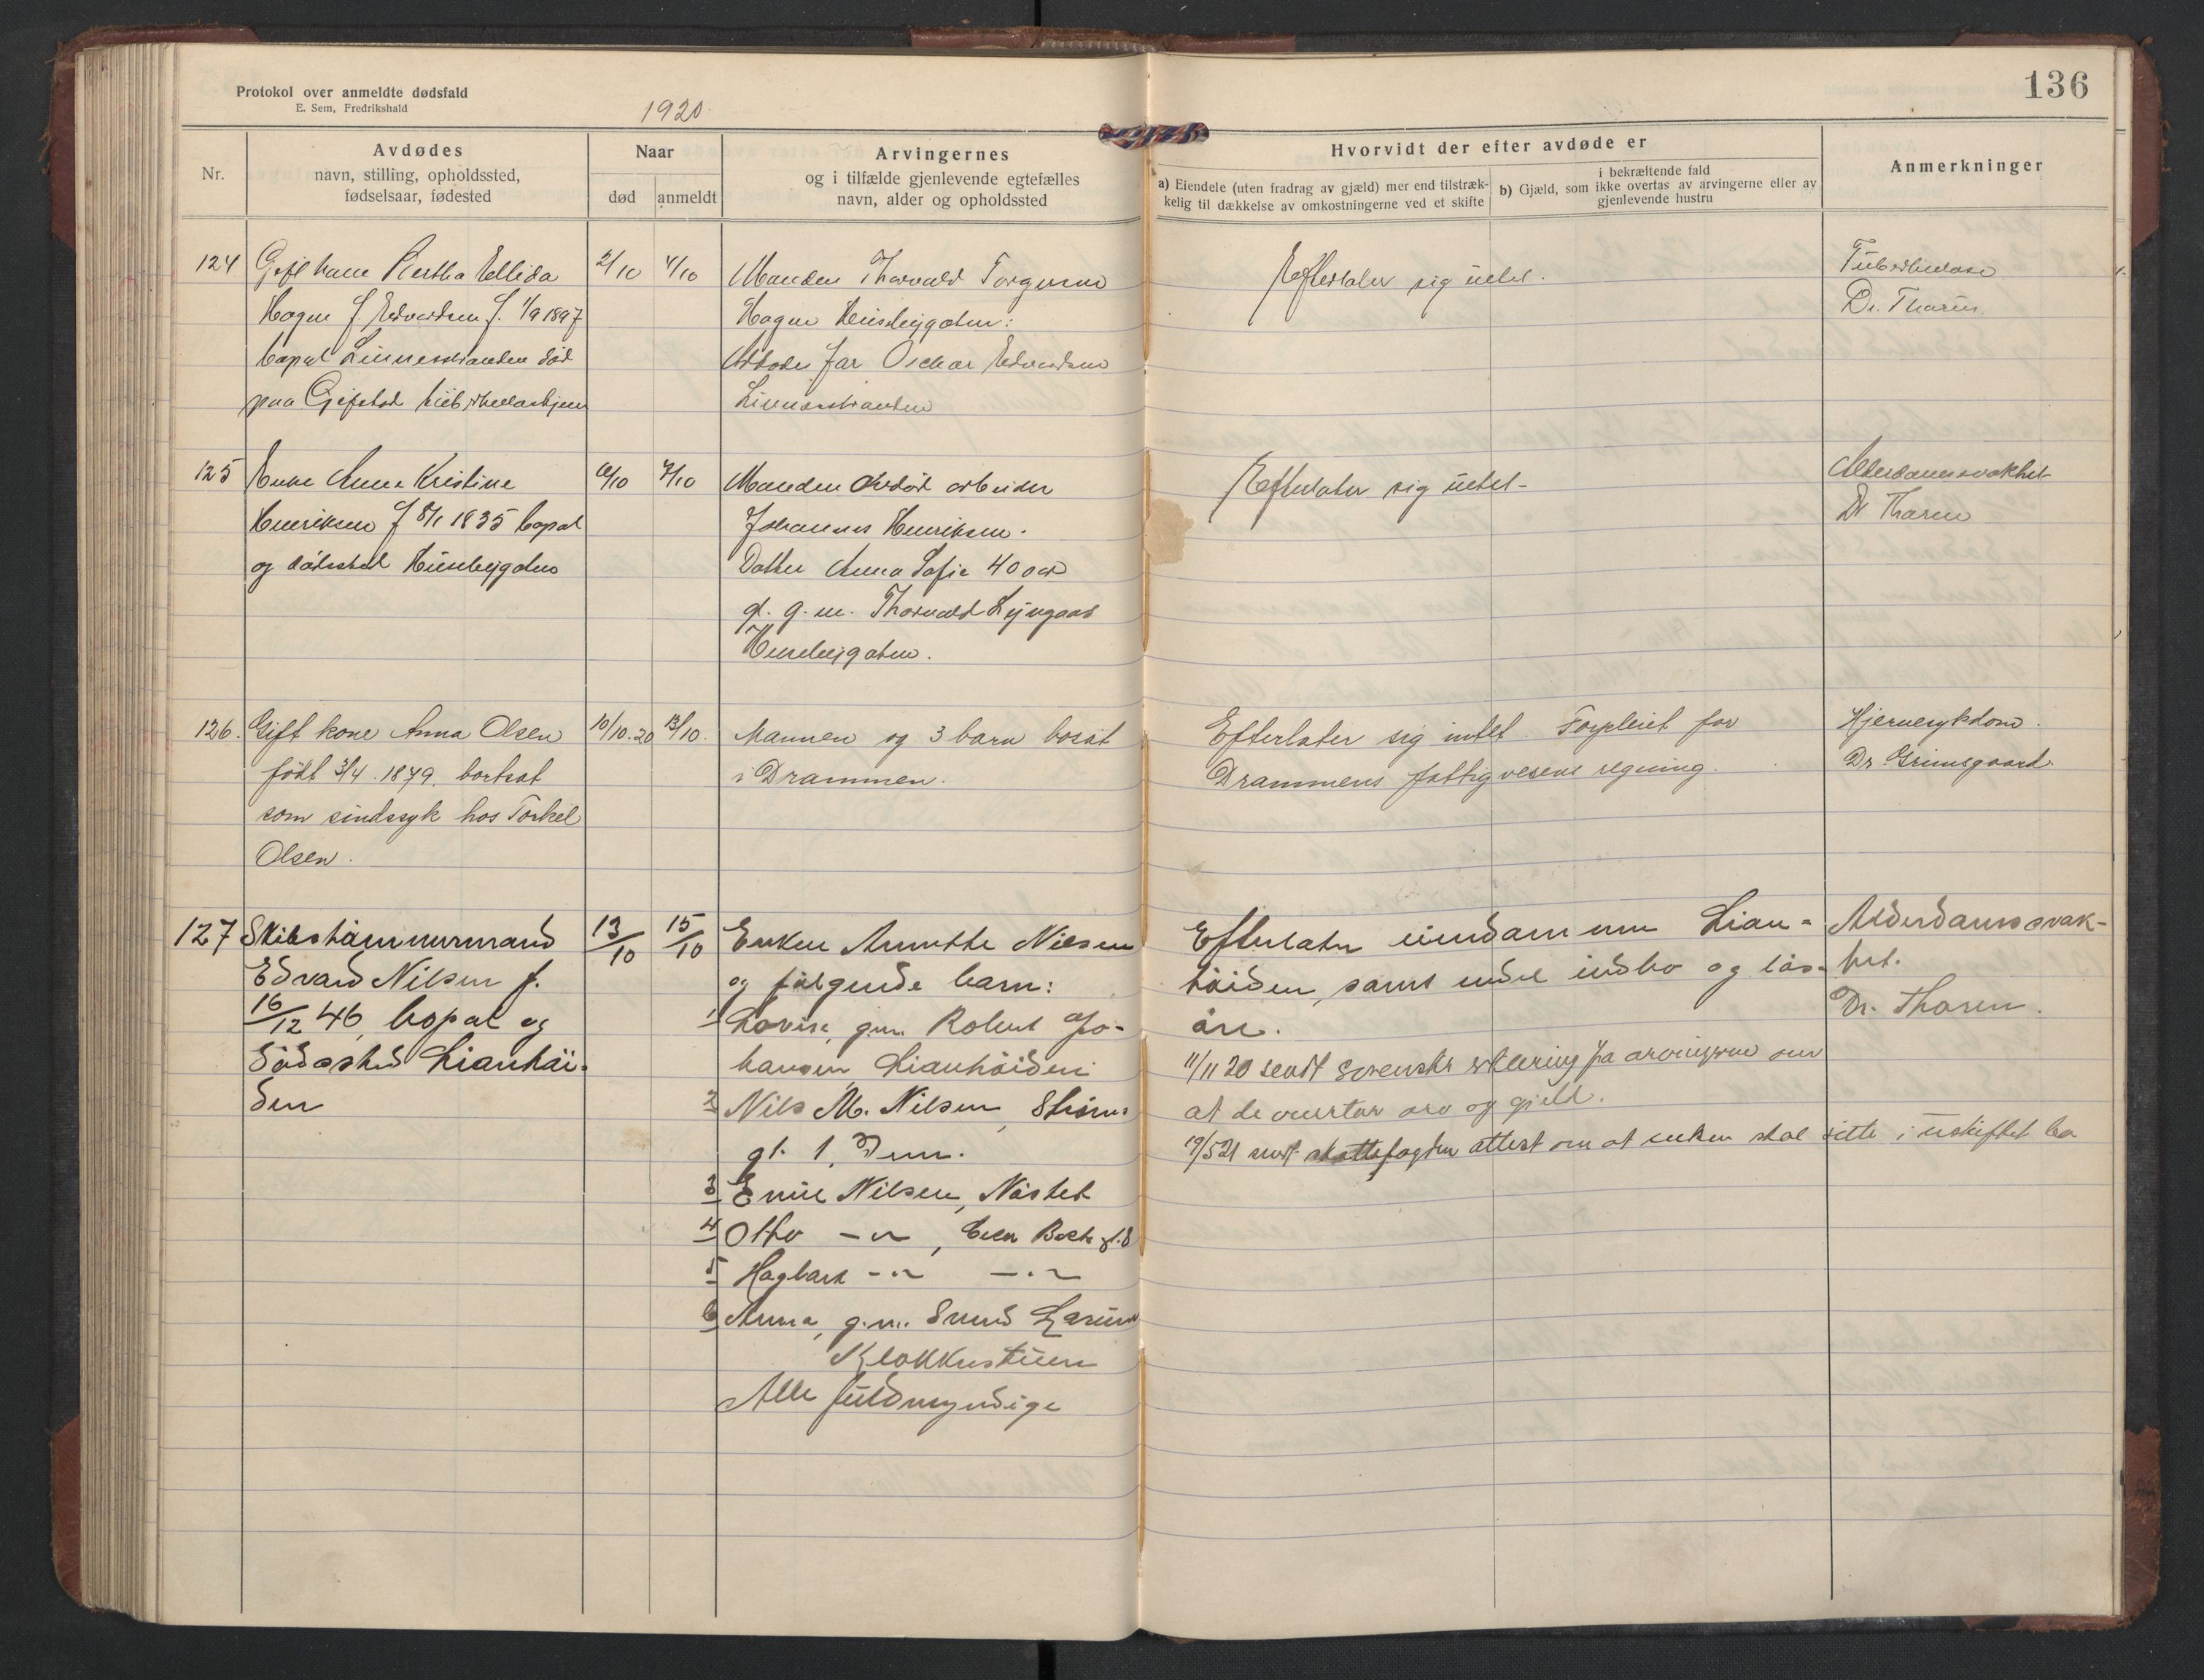 Protokol over anmeldte dødsfald
E. Sem, Fredrikshald
1920.
136
Nr.
Avdødes
navn, stilling, opholdssted,
fødselsaar, fødested
Naar
død
anmeldt
Arvingernes
og i tilfælde gjenlevende egtefælles
navn, alder og opholdssted
Hvorvidt der efter avdøde er
a) Eiendele (uten fradrag av gjæld) mer end tilstræk-
kelig til dækkelse av omkostningerne ved et skifte
i bekræftende fald
b) Gjæld, som ikke overtas av arvingerne eller av
gjenlevende hustru
Anmerkninger
124
Gift kone Bertha Ellida
Hogne f. Edvardsen f. 1/9 1897
bopæl Linnesstranden død
paa Gifstad tuberkulosehjem
2/10
4/10
Manden Thorvald Torgersen
Hogne Husebygaten:
Avdødes far Oschar Edvardsen
Linnesstranden
Efterlater sig intet.
Tuberkulose
Dr. Thoren
125
Enke Anne Kristine
Henriksen f 8/1 1835 bopæl
og dødssted Husebygaten
6/10
7/10
Manden avdød arbeider
Johannes Henriksen.
Datter Anna Sofie 40 aar
gl. g. m. Thorvald Lyngaas
Husebygaten.
Efterlater sig intet-
Alderdomssvakhet
Dr Thoren
126.
Gift kone Anna Olsen
født 3/4. 1879. bortsat
som sindssyk hos Torkel
Olsen.
10/10.20
13/10.
Mannen og 3 barn bosat
i Drammen.
Efterlater sig intet. Forpleiet for
Drammens fattigvesens regning.
Hjernesykdom.
Dr. Grimsgaard.
127
Skibstømmermand
Edvard Nilsen f.
16/12 46, bopæl og
dødssted Lianhøi-
den
13/10
15/10
Enken Annette Nilsen
og følgende barn:
1 Lovise, gm. Robert Jo-
hansen Lianhøiden
2 Nils M. Nilsen, Strøms
gt. 1, Drm.
3 Emil Nilsen, Nøstet
4 Otto -"-, gt. 8
5 Hagbart -"- -"-
6 Anna, g.m. Svend Larsen
Klokkerstuen
Alle fuldmyndige
Efterlater eiendommen Lian-
høiden, samt endel indbo og løs-
øre.
11/11 20 sendt Sorenskr erklæring fra arvingerne om
at de overtar arv og gjeld.
19/5 21 sendt skattefogden attest om at enken skal sitte i uskiftet bo
Alderdomssvak-
het.
Dr. Thoren.